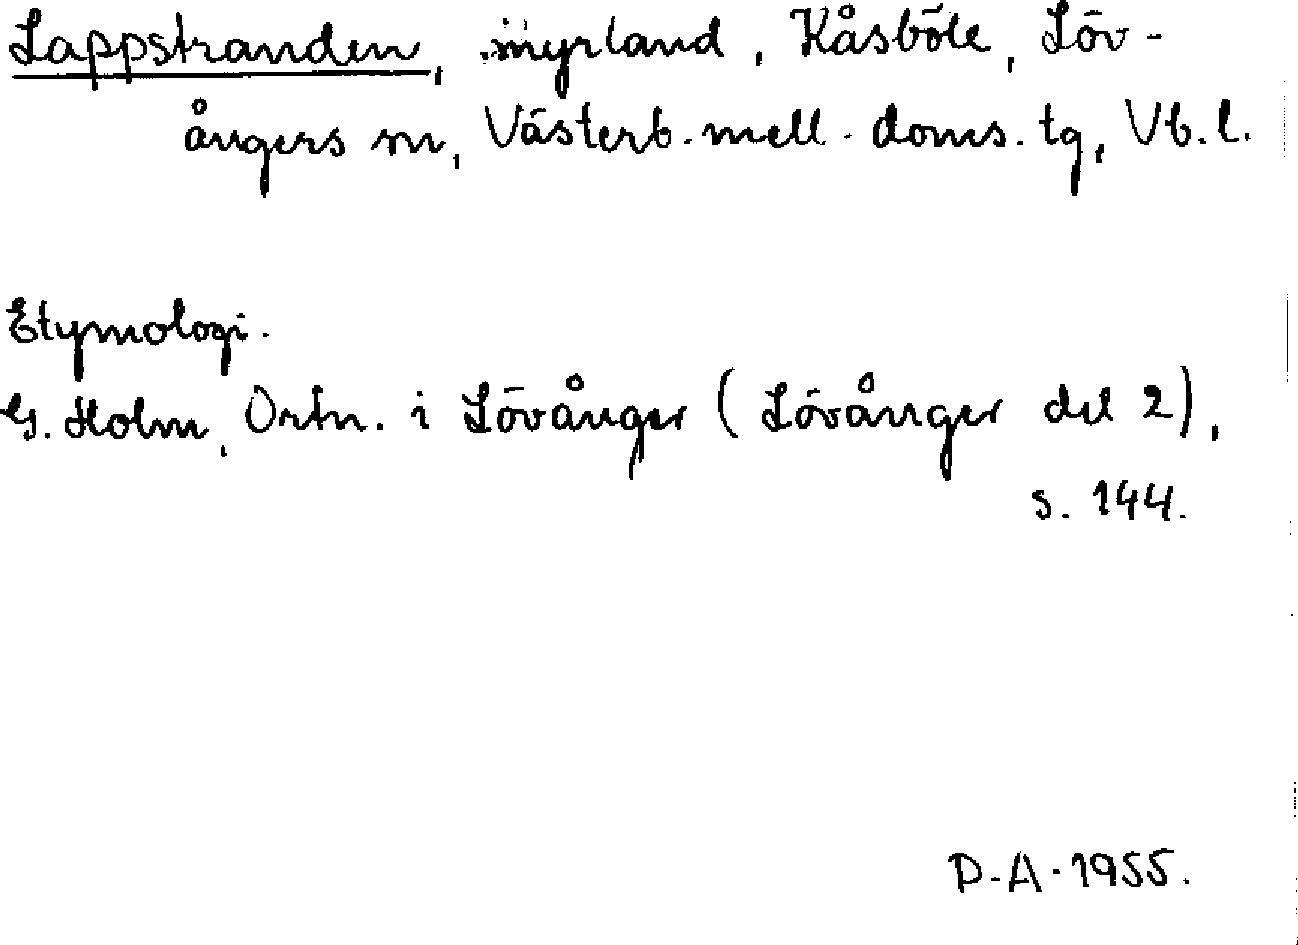 Lappstranden, myrland, Kåsböle, Löv-
ångers sn, Västerb. mell. doms. tg, Vb. l.
Etymologi.
G. Holm, Ortn. i Lövånger (Lövånger del 2),
s. 144.
D-A. 1955.